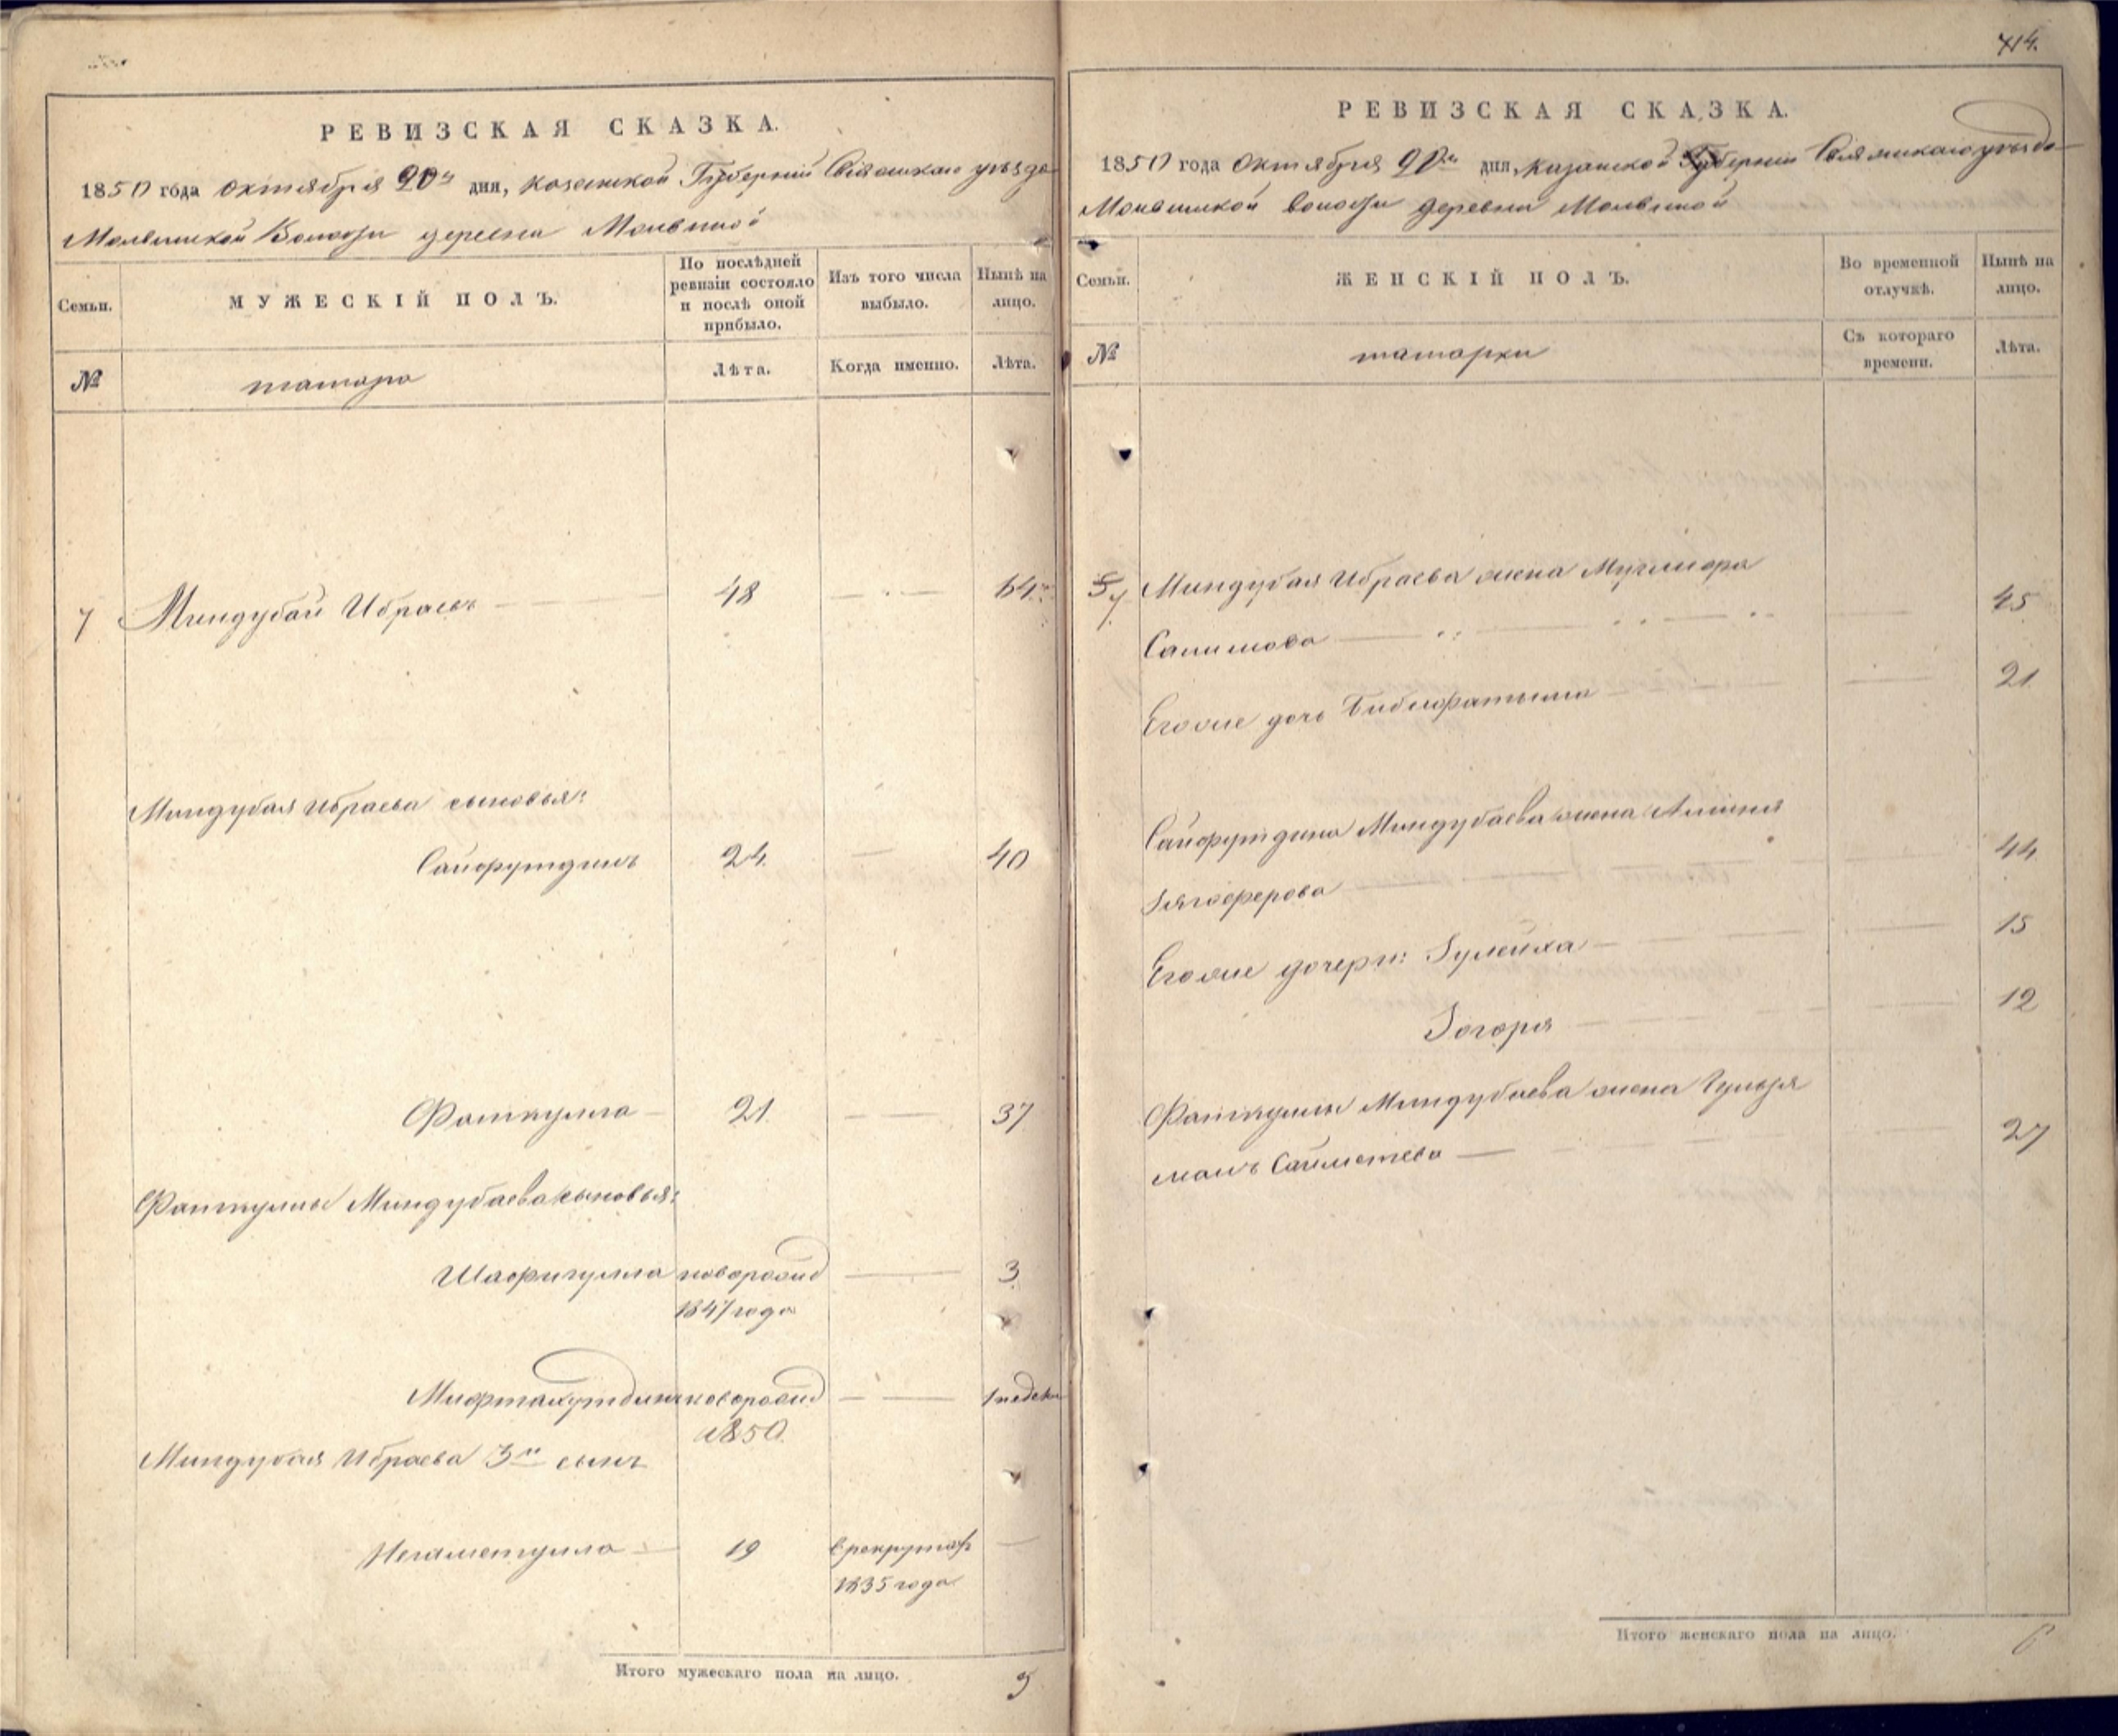 414.
РЕВИЗСКАЯ СКАЗКА.
1850 года октября 20го дня, Казанской Губернии Свіяжскаго уѣзда
Молвинской Волости деревни Молвиной
Семьи.
МУЖЕСКІЙ ПОЛЪ.
По послѣдней ревизіи состояло и послѣ оной прибыло.
Изъ того числа выбыло.
Нынѣ на лицо.
№
татара
Лѣта.
Когда именно.
Лѣта.
7 Миндубай Ибраевъ 48 64
Миндубая Ибраева сыновья:
Сайфутдинъ 24 40
Фаткулла 21 37
Фаткуллы Миндубаева сыновья:
Шафигулла новорожд 3
1847 года
Мифтахутдинъ новорожд 1 недели
1850
Миндубая Ибраева 3й сынъ
Негаметулла 19 в рекрутах
1835 года
Итого мужескаго пола на лицо. 5
РЕВИЗСКАЯ СКАЗКА.
1850 года Октября 20го дня, Казанской Губерніи Свіяжскаго уѣзда
волости деревни Молвиной
Семьи.
ЖЕНСКІЙ ПОЛЪ.
Во временной отлучкѣ.
Нынѣ на лицо.
№
татарки
Съ котораго времени.
Лѣта.
7 Миндубая Ибраева жена
Салимова 45
Егоже дочь Бибифатыма 21
Сайфутдина Миндубаева жена
Зягоферова 44
Егоже дочери: Зулейха 15
Зогоря 12
Фаткуллы Миндубаева жена Гульзя
малъ Сайметева 27
Итого женскаго пола на лицо. 6